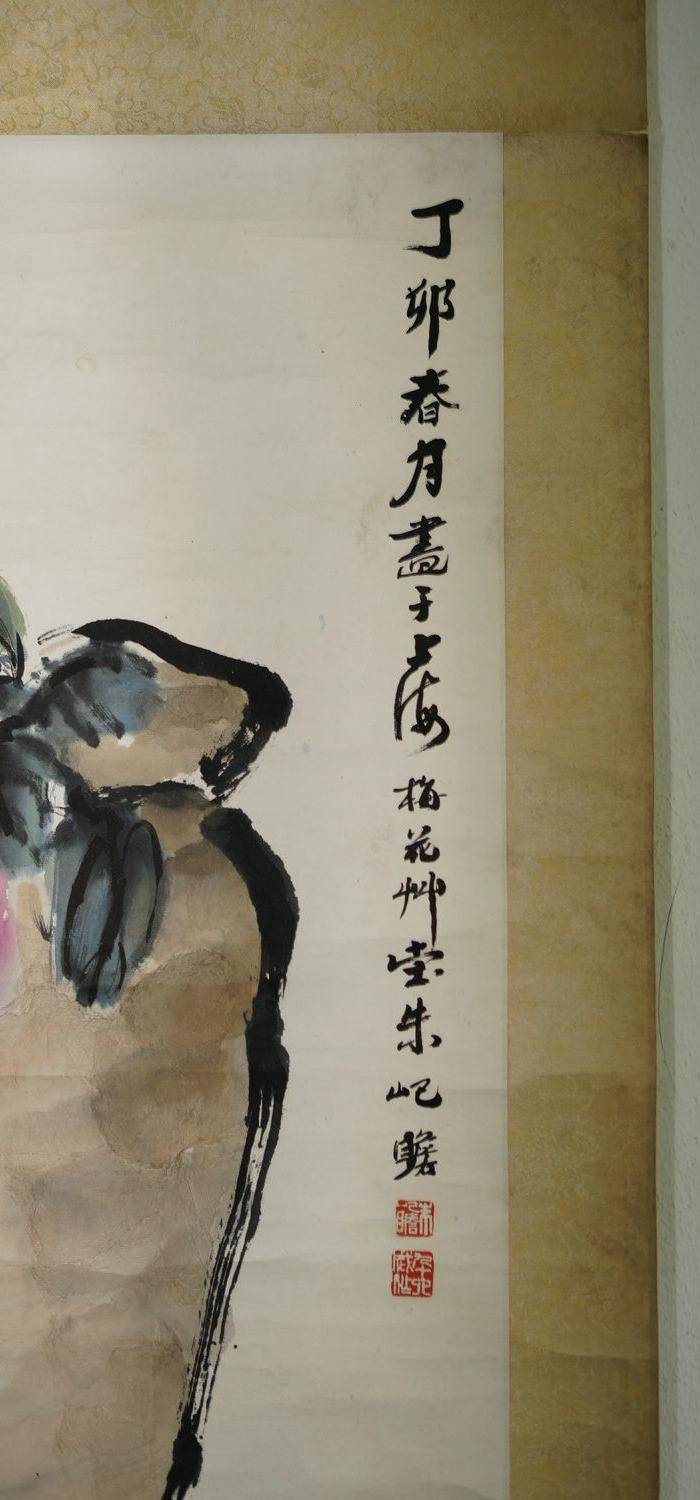 丁卯春月畫于上海梅花艸堂朱屺瞻
朱屺瞻